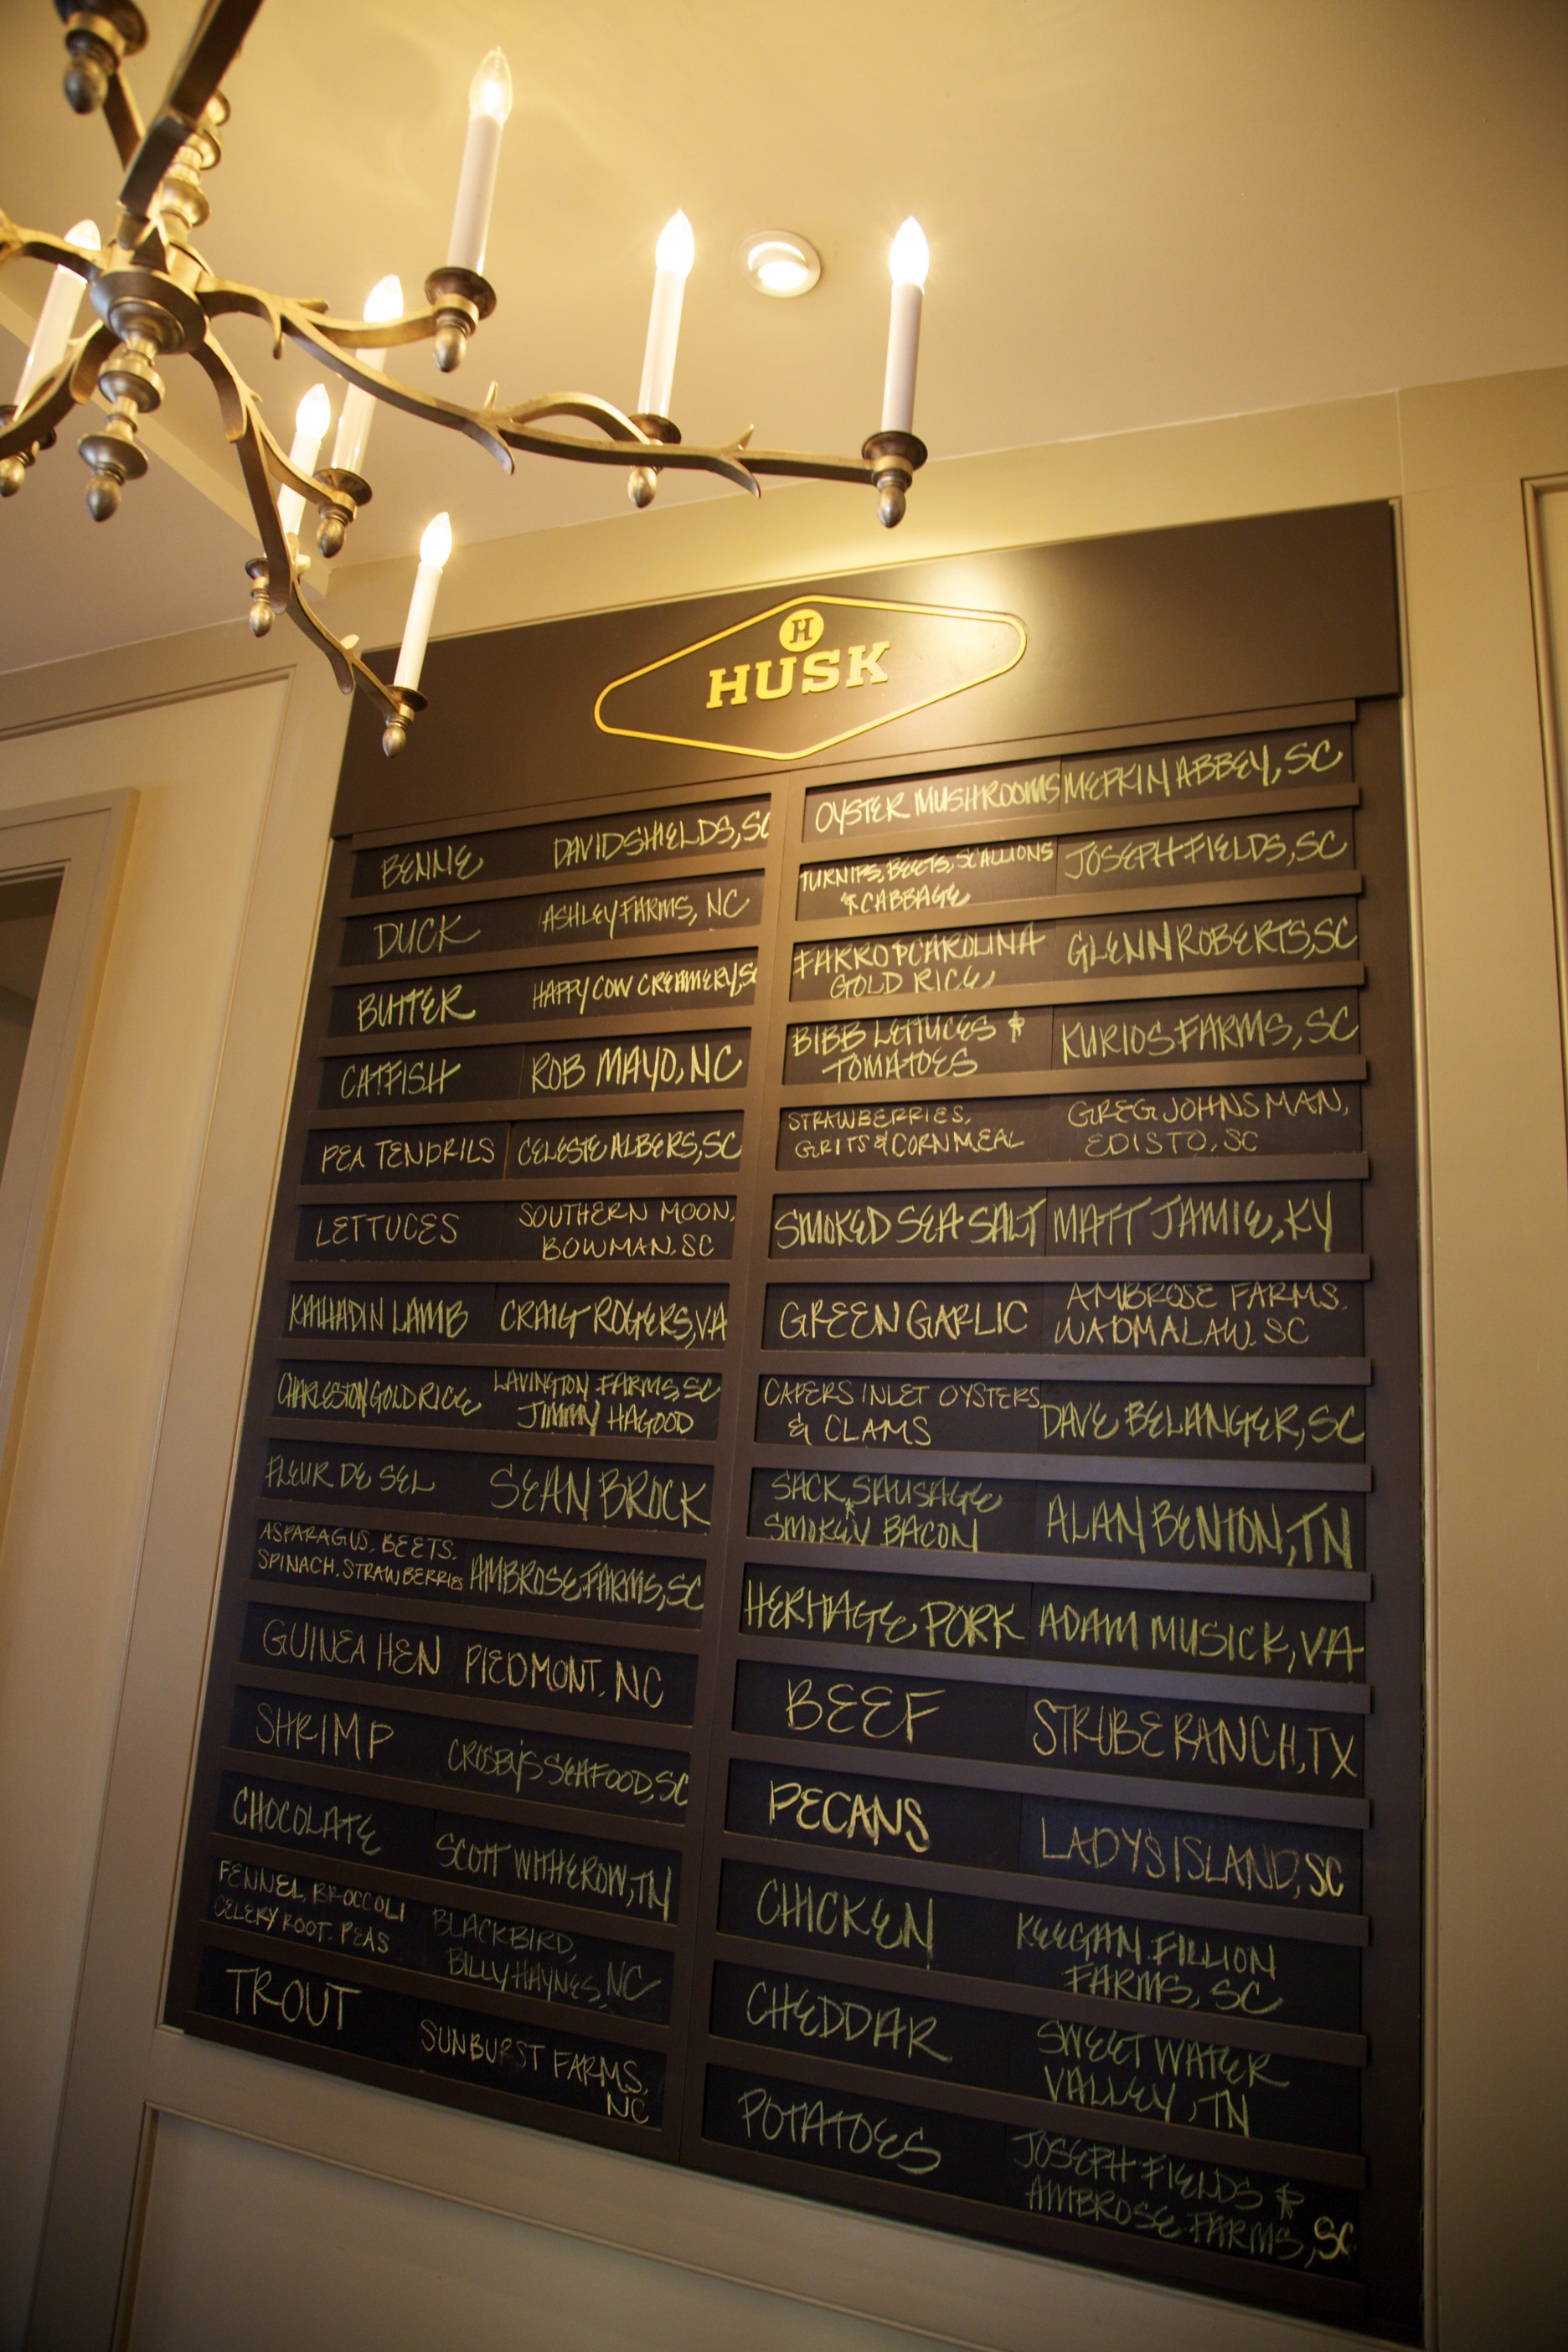 H
HUSK
BENNE DAVID SHIELDS, SC
DUCK ASHLEY FARMS, NC
BUTTER HAPPY COW CREAMERY, SC
CATFISH ROB MAYO, NC
PEA TENDRILS CELESTE ALBERS, SC
LETTUCES SOUTHERN MOON,
BOWMAN. SC
KATAHDIN LAMB CRAIG ROGERS, VA
CHARLESTON GOLD RICE LAVINGTON FARMS, SC
JIMMY HAGOOD
FLEUR DE SEL SEAN BROCK
ASPARAGUS, BEETS,
SPINACH, STRAWBERRIES AMBROSE FARMS, SC
GUINEA HEN PIEDMONT, NC
SHRIMP CROSBY'S SEAFOOD, SC
CHOCOLATE SCOTT WITHEROW, TN
FENNEL, BROCCOLI
CELERY ROOT, PEAS
BLACKBIRD,
BILLY HAYNES, NC
TROUT SUNBURST FARMS,
NC
OYSTER MUSHROOMS MEPKIN ABBEY, SC
TURNIPS, BEETS, SCALLIONS
& CABBAGE
JOSEPH FIELDS, SC
FARRO & CAROLINA
GOLD RICE
GLENN ROBERTS, SC
BIBB LETTUCES &
TOMATOES
KURIOS FARMS, SC
STRAWBERRIES,
GRITS & CORNMEAL
GREG JOHNSMAN,
EDISTO, SC
SMOKED SEA SALT MATT JAMIE, KY
GREEN GARLIC AMBROSE FARMS.
WADMALAW. SC
CAPERS INLET OYSTERS
& CLAMS
DAVE BELANGER, SC
SACK SAUSAGE
& SMOKEY BACON
ALAN BENTON, TN
HERITAGE PORK ADAM MUSICK, VA
BEEF STRUBE RANCH, TX
PECANS LADY'S ISLAND, SC
CHICKEN KEEGAN. FILLION
FARMS, SC
CHEDDAR SWEETWATER
VALLEY, TN
POTATOES JOSEPH FIELDS &
AMBROSE FARMS, SC